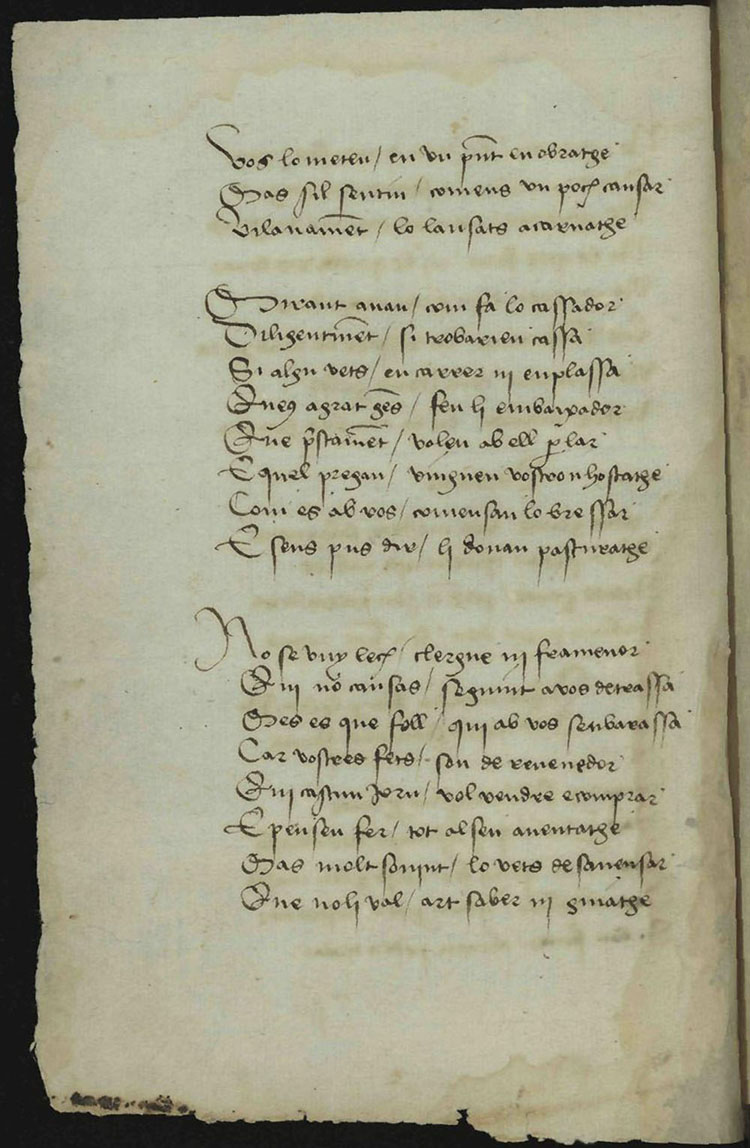 Vos lo meteu / en un p̃nt en obratge
Mas sil sentiu / comens un poch cansar
Vilanam̃ent / lo lansats acarnatge
Mirant anau / com fa lo cassador
Diligentm̃ent / si trobarieu cassa
Si algu vets / en carrer ni en plassa
Queus agrat ges / feu li embaixador
Que p̃stam̃ent / voleu ab ell p̱lar
E quel pregau / vingueu vostron hostatge
Com es ab vos / comensau lo bressar
E sens pus dir / li donau pasturatge
No se vuy lech / clergue ni framenor
Qui nõ cansas / seguint a vos detrassa
Mes es que foll / qui ab vos senbarassa
Car vostres fets / son de revenedor
Qui cascun jorn / vol vendre e comprar
E pensen fer / tot al seu aventatge
Mas molt sovint / lo vets desavensar
Que noli val / art saber ni